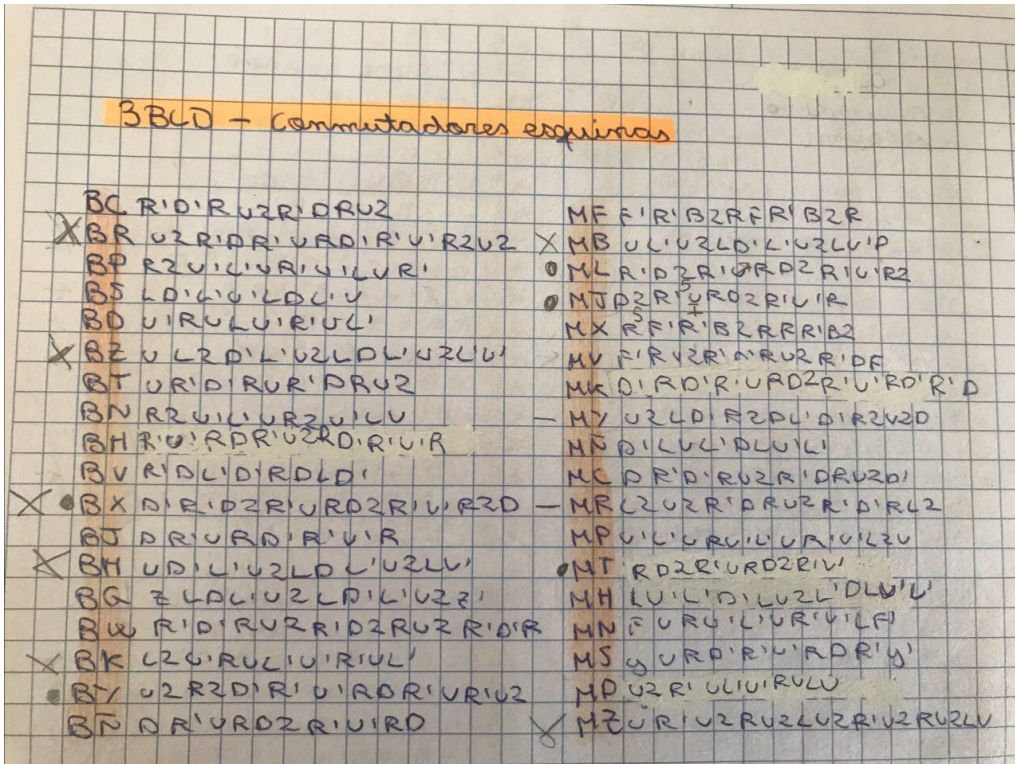 3BLD - Conmutadores esquinas
BC R'D'R U2R'DRU2
BR U2R'DR'URD'R'U'R2U2
BP R2U'L'UR'U'LUR'
BS LD'L'U'LDL'U
BD U'RULU'R'UL'
BZ UL2D'L'U2LDL'U2LU'
BT UR'D'RUR'DRU2
BN R2U'L'UR2U'LU
BH R'U'RDR'U2RD'R'U'R
BV R'DL'D'RDLD'
BX D'R'D2R'URD2R'U'R2D
BJ DR'URD'R'U'R
BH UD'L'U2LDL'U2LU'
BG Z LDL'U2LD'L'U2Z'
BW R'D'RU2R'D2RU2R'D'R
BK L2U'RUL'U'R'UL'
U2R2D'R'U'RDR'UR'U2
BÑ DR'URD2R'U'RD
MF F'R'B2RFR'B2R
MB UL'U2LD'L'U2LU'D
ML R'D2R'URD2R'U'R2
MJ D2R'URD2R'U'R
MX
MV F'RU2R'D'RU2R'DF
MK D'RD'R'URD2R'U'RD'R'D
MY U2LD'R2DL'D'R2U2D
MÑ D'LUL'DLU'L'
MC DR'D'RU2R'DRU2D'
MR L2U2R'DRU2R'D'RL2
MP U'L'URU'L'UR'U'L2U
MT RD2R'URD2R'U'
MH LU'L'D'LU2L'DLU'L'
MN FURU'L'UR'U'LF'
MS y URD'R'U'RDR'y'
MD U2R'UL'U'RULU
MZ UR'U2RU2LU2R'U2RU2LU